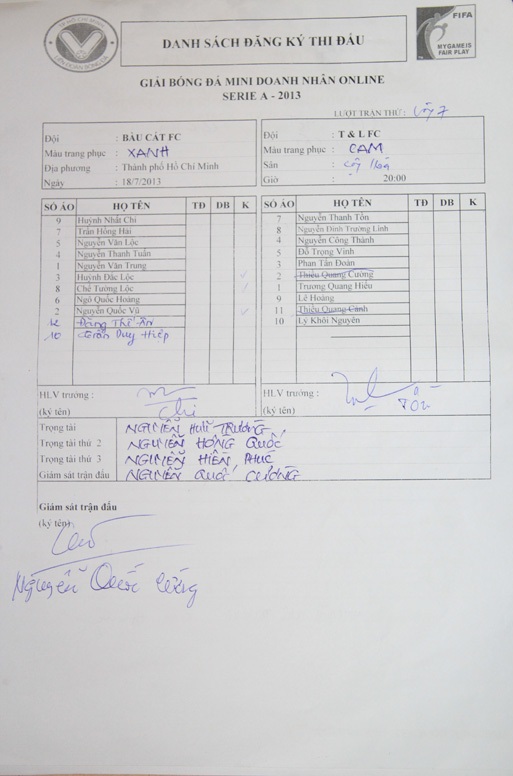 DANH SÁCH ĐĂNG KÝ THI ĐẤU
FIFA
MY GAME IS
FAIR PLAY
GIẢI BÓNG ĐÁ MINI DOANH NHÂN ONLINE
SERIE A - 2013
LƯỢT TRẬN THỨ : 7
Đội : BÀU CÁT FC
Màu trang phục : XANH
Địa phương : Thành phố Hồ Chí Minh
Ngày : 18/7/2013
Đội : T & L FC
Màu trang phục : CAM
Sân :
Giờ : 20:00
SỐ ÁO HỌ TÊN TĐ DB K
9 Huỳnh Nhất Chi
7 Trần Hồng Hải
5 Nguyễn Văn Lộc
4 Nguyễn Thanh Tuấn
1 Nguyễn Văn Trung
3 Huỳnh Đắc Lộc
8 Chế Tường Lộc
6 Ngô Quốc Hoàng
2 Nguyễn Quốc Vũ
12 Đặng Thế Ân
10 Trần Duy Hiệp
SỐ ÁO HỌ TÊN TĐ DB K
7 Nguyễn Thanh Tồn
8 Nguyễn Đình Trường Linh
4 Nguyễn Công Thành
5 Đỗ Trọng Vinh
3 Phan Tấn Đoàn
2 Thiều Quang Cường
1 Trương Quang Hiếu
9 Lê Hoàng
11 Thiều Quang Cảnh
10 Lý Khôi Nguyên
HLV trưởng :
(ký tên) Chi
HLV trưởng :
(ký tên)
Trọng tài NGUYỄN HỮU TRƯỜNG
Trọng tài thứ 2 NGUYỄN HỒNG QUỐC
Trọng tài thứ 3 NGUYỄN HIỀN PHÚC
Giám sát trận đấu NGUYỄN QUỐC CƯỜNG
Giám sát trận đấu
(ký tên)
Nguyễn Quốc Cường